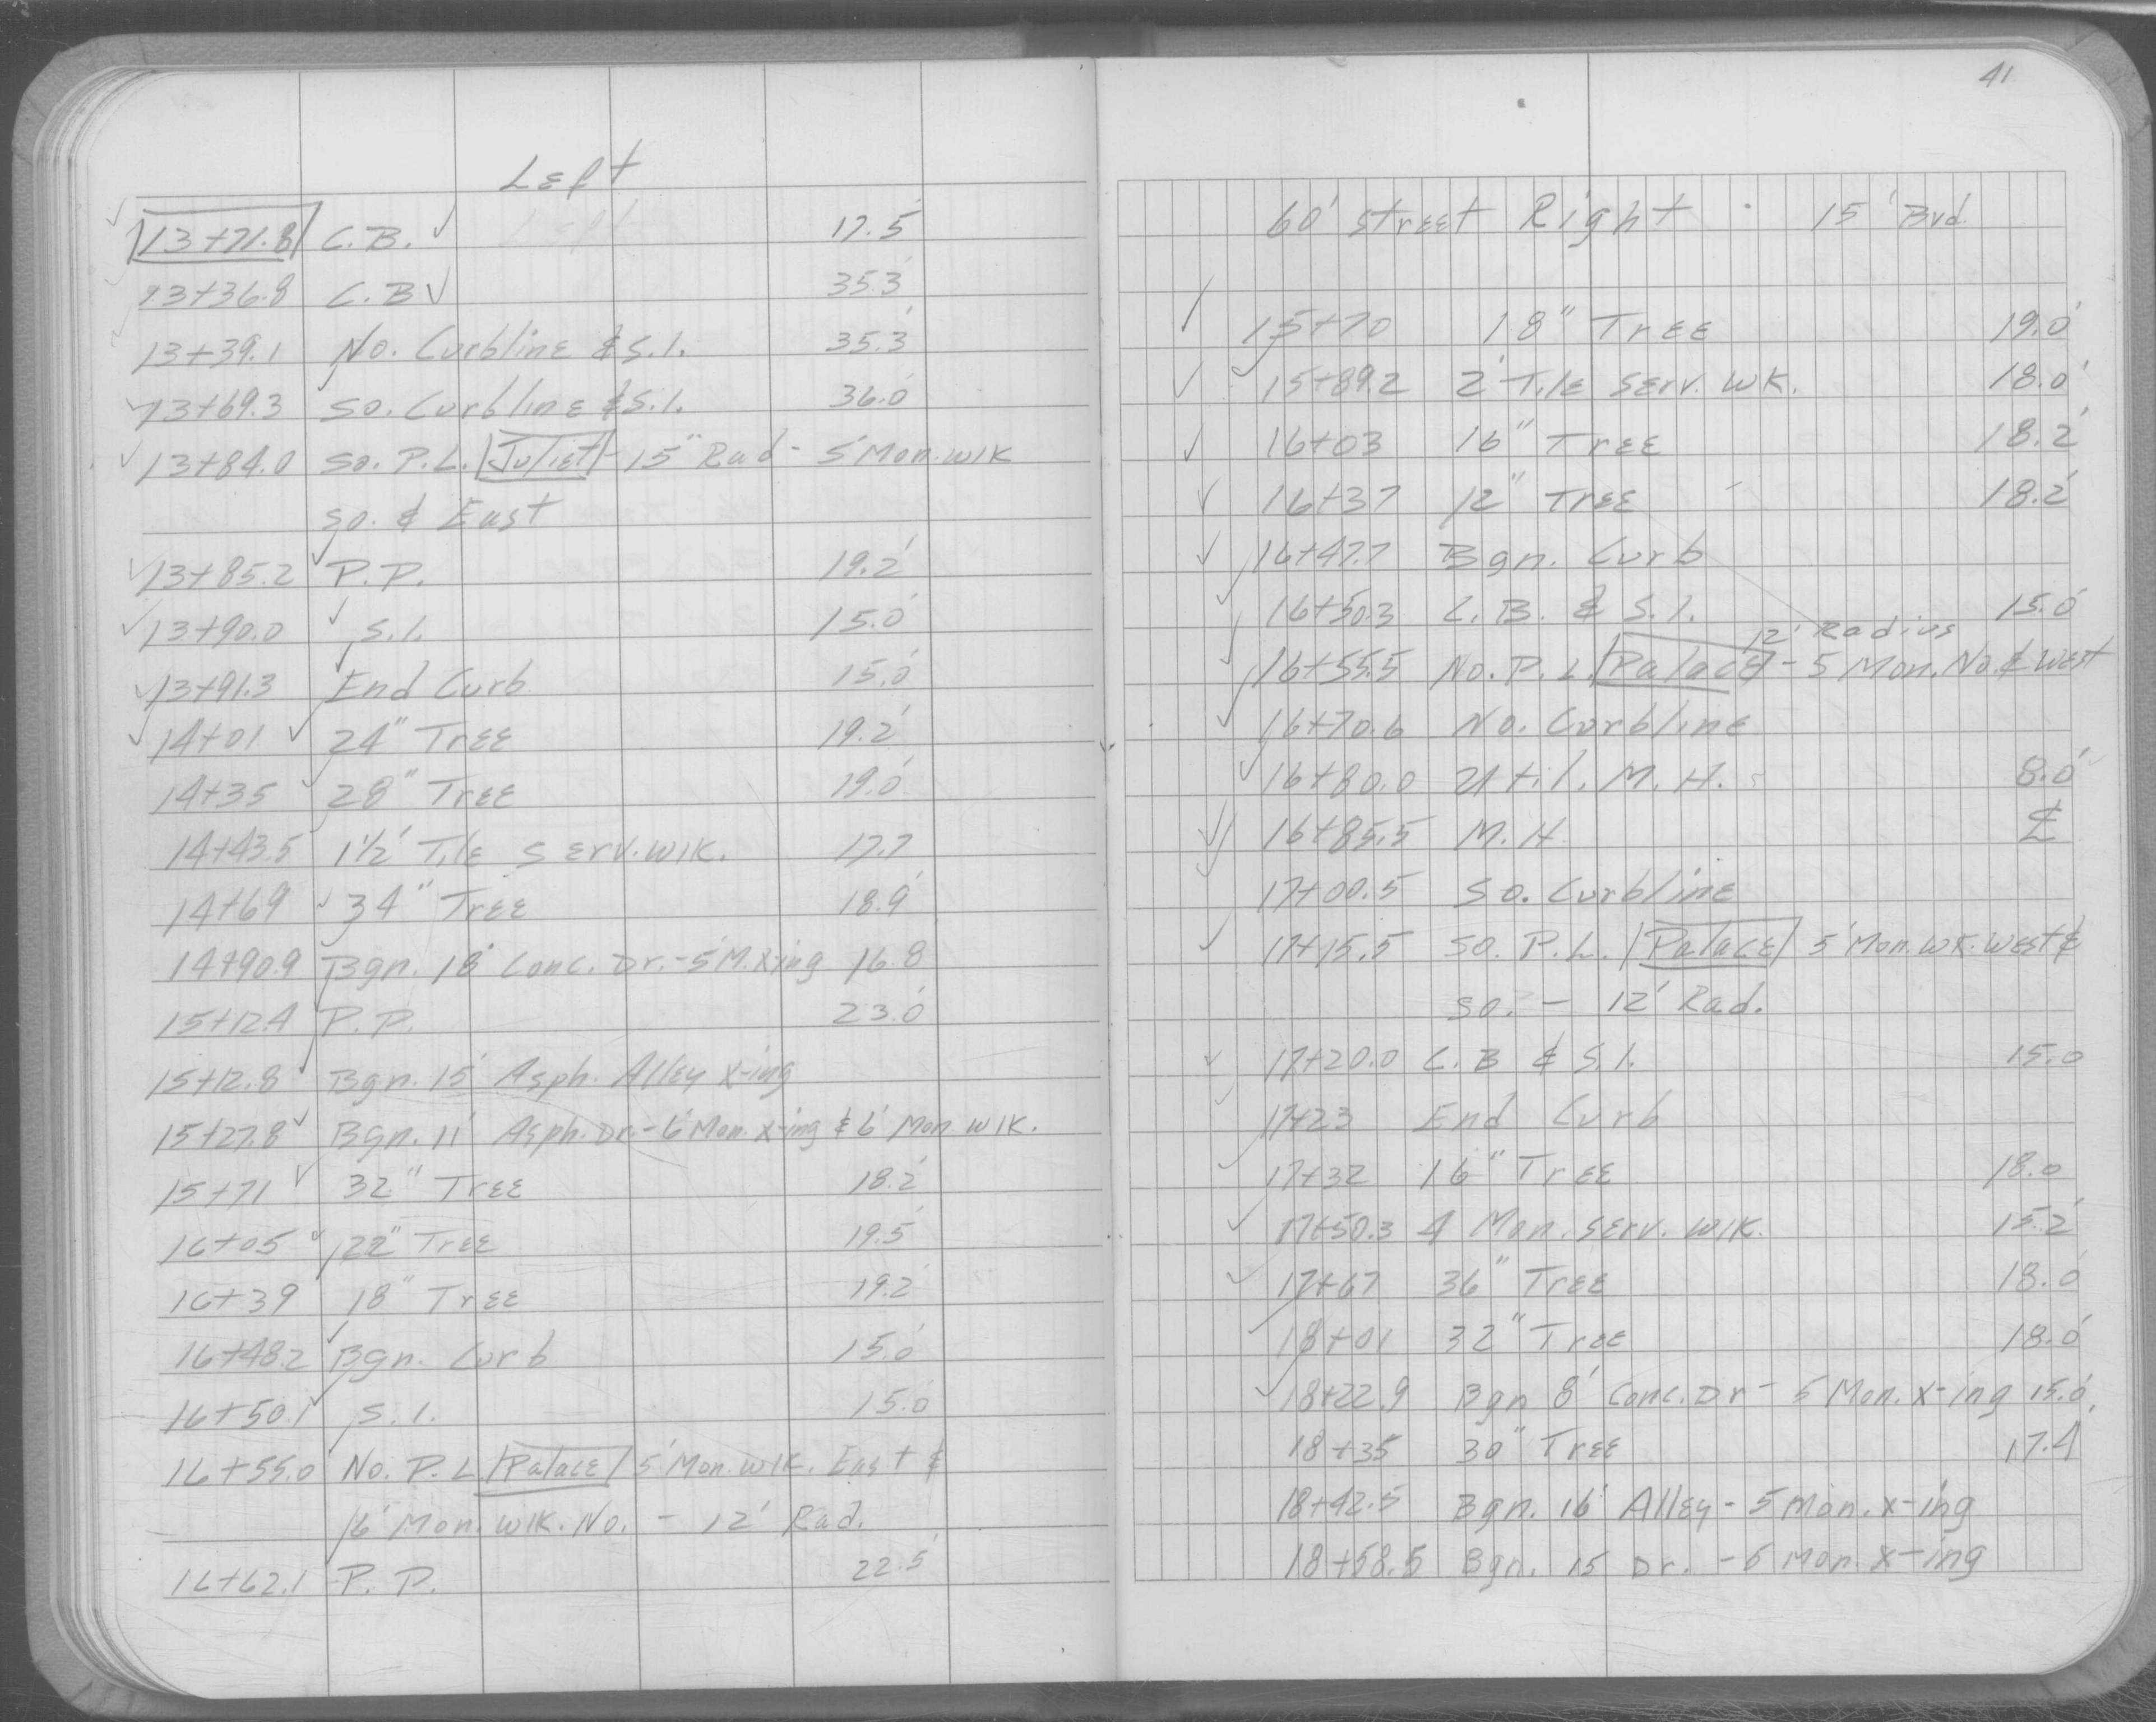 Left
13+71.8 C.B. 17.5'
13+36.8 C.B. 35.3'
13+39.1 No. Curbline & S.I. 35.3'
13+69.3 So. Curbline & S.I. 36.0'
13+84.0 So. P.L. Juliet - 15" Rad - 5' Mon. WlK
So. & East
13+85.2 P.P. 19.2'
13+90.0 S.I. 15.0'
13+91.3 End Curb 15.0'
14+01 24" Tree 19.2'
14+35 28" Tree 19.0'
14+43.5 1½' Tile Serv. WlK. 17.7'
14+69 34" Tree 18.9'
14+90.9 Bgn. 18' Conc. Dr. - 5' M. X-ing 16.8
15+12.4 P.P. 23.0'
15+12.8 Bgn. 15' Asph. Alley X-ing
15+27.8 Bgn. 11' Asph. Dr. - 6' Mon. X-ing & 6' Mon. WlK.
15+71 32" Tree 18.2'
16+05 22" Tree 19.5'
16+39 18" Tree 19.2'
16+48.2 Bgn. Curb 15.0'
16+50.1 S.I. 15.0'
16+55.0 No. P.L. Palace 5' Mon. WlK. East &
6' Mon. WlK. No. - 12' Rad.
16+62.1 P.P. 22.5'
41
60' Street Right 15' Bvd.
15+70 18" Tree 19.0'
15+89.2 2' Tile Serv. WK. 18.0'
16+03 16" Tree 18.2'
16+37 12" Tree 18.2'
16+47.7 Bgn. Curb
16+50.3 C.B. & S.I. 15.0'
12' Radius
16+55.5 No. P.L. Palace - 5' Mon. No. & West
16+70.6 No. Curbline
16+80.0 Util. M.H. 8.0'
16+85.5 M.H. ℄
17+00.5 So. Curbline
17+15.5 So. P.L. Palace 5' Mon. WK. West &
So. - 12' Rad.
17+20.0 C.B & S.I. 15.0
17+23 End Curb
17+32 16" Tree 18.0
17+50.3 4 Mon. Serv. WlK. 15.2'
17+67 36" Tree 18.0'
18+01 32" Tree 18.0'
18+22.9 Bgn 8' Conc. Dr - 5 Mon. X-ing 15.0'
18+35 30" Tree 17.4
18+42.5 Bgn. 16' Alley - 5 Mon. X-ing
18+58.5 Bgn. 15 Dr. - 5 Mon. X-ing